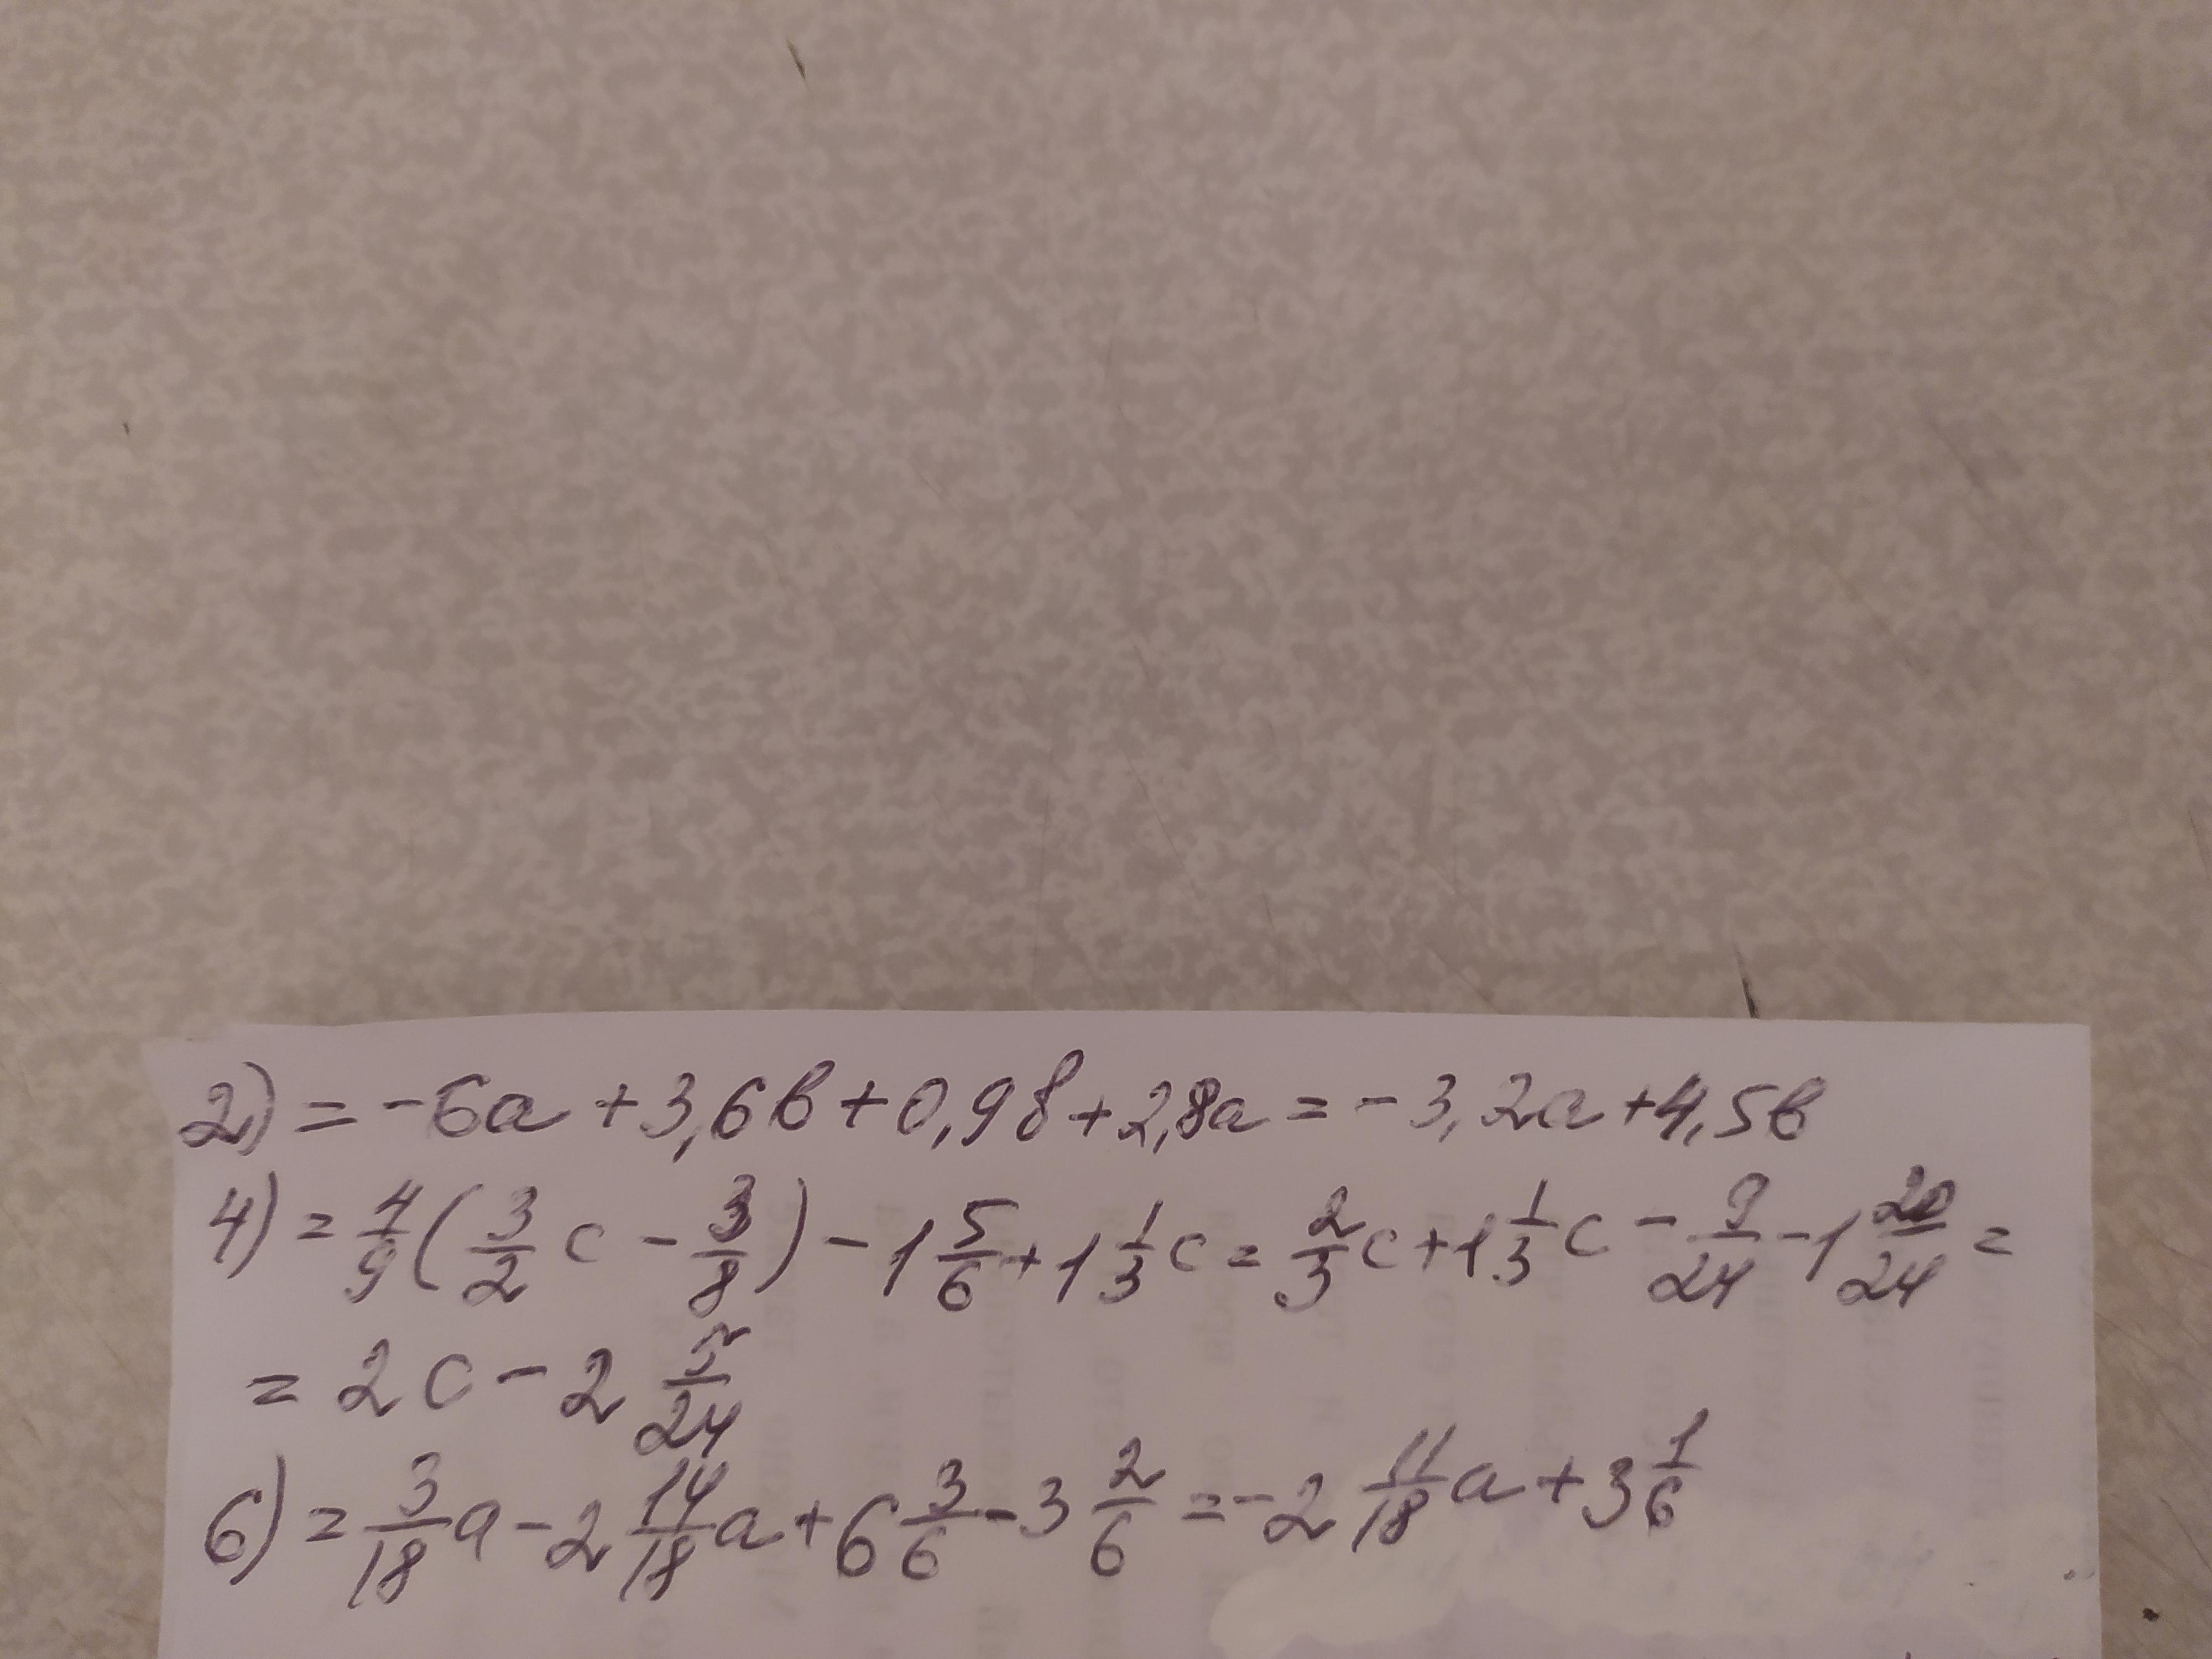 2) = -6a + 3,6b + 0,9b + 2,8a = -3,2a + 4,5b
4) = 4/9 (3/2 c - 3/8) - 1 5/6 + 1 1/3 c = 2/3 c + 1 1/3 c - 9/24 - 1 20/24 =
= 2c - 2 5/24
6) = 3/18 a - 2 14/18 a + 6 3/6 - 3 2/6 = -2 11/18 a + 3 1/6